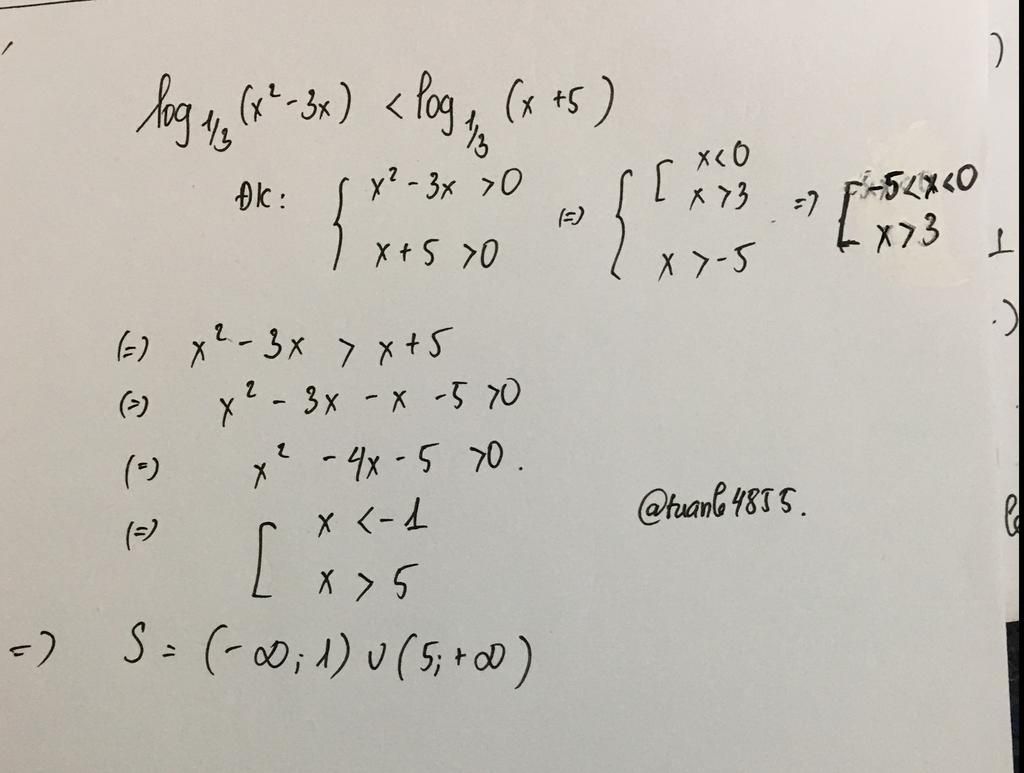 log₁/₃ (x² - 3x) < log₁/₃ (x + 5)
ĐK: { x² - 3x > 0 (=) { [ x < 0 => [ -5 < x < 0
x > 3 x > 3
x + 5 > 0 x > -5
(=) x² - 3x > x + 5
(=) x² - 3x - x - 5 > 0
(=) x² - 4x - 5 > 0.
(=) [ x < -1
x > 5
@tuanle4855.
=> S = (-∞; 1) ∪ (5; +∞)